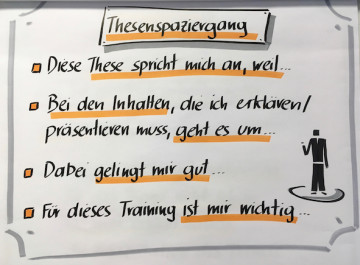 Thesenspaziergang
Diese These spricht mich an, weil...
Bei den Inhalten, die ich erklären/
präsentieren muss, geht es um...
Dabei gelingt mir gut...
Für dieses Training ist mir wichtig...